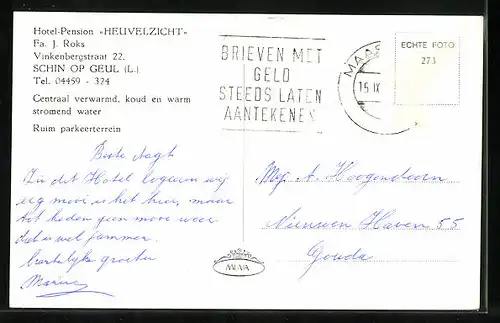 Hotel-Pension «HEUVELZICHT»
Fa. J. Roks
Vinkenbergstraat 22.
SCHIN OP GEUL (L.)
Tel. 04459 - 324
Centraal verwarmd, koud en warm
stromend water
Ruim parkeerterrein
BRIEVEN MET
GELD
STEEDS LATEN
AANTEKENEN
MAAS
15 IX
ECHTE FOTO
273
Beste
In dit Hotel logeren wij
erg mooi is het hier, maar
tot heden geen mooi weer
dat is wel jammer.
hartelijke groeten
Mej. A. Hoogendoorn
Nieuwen Haven 55
Gouda
MUVA